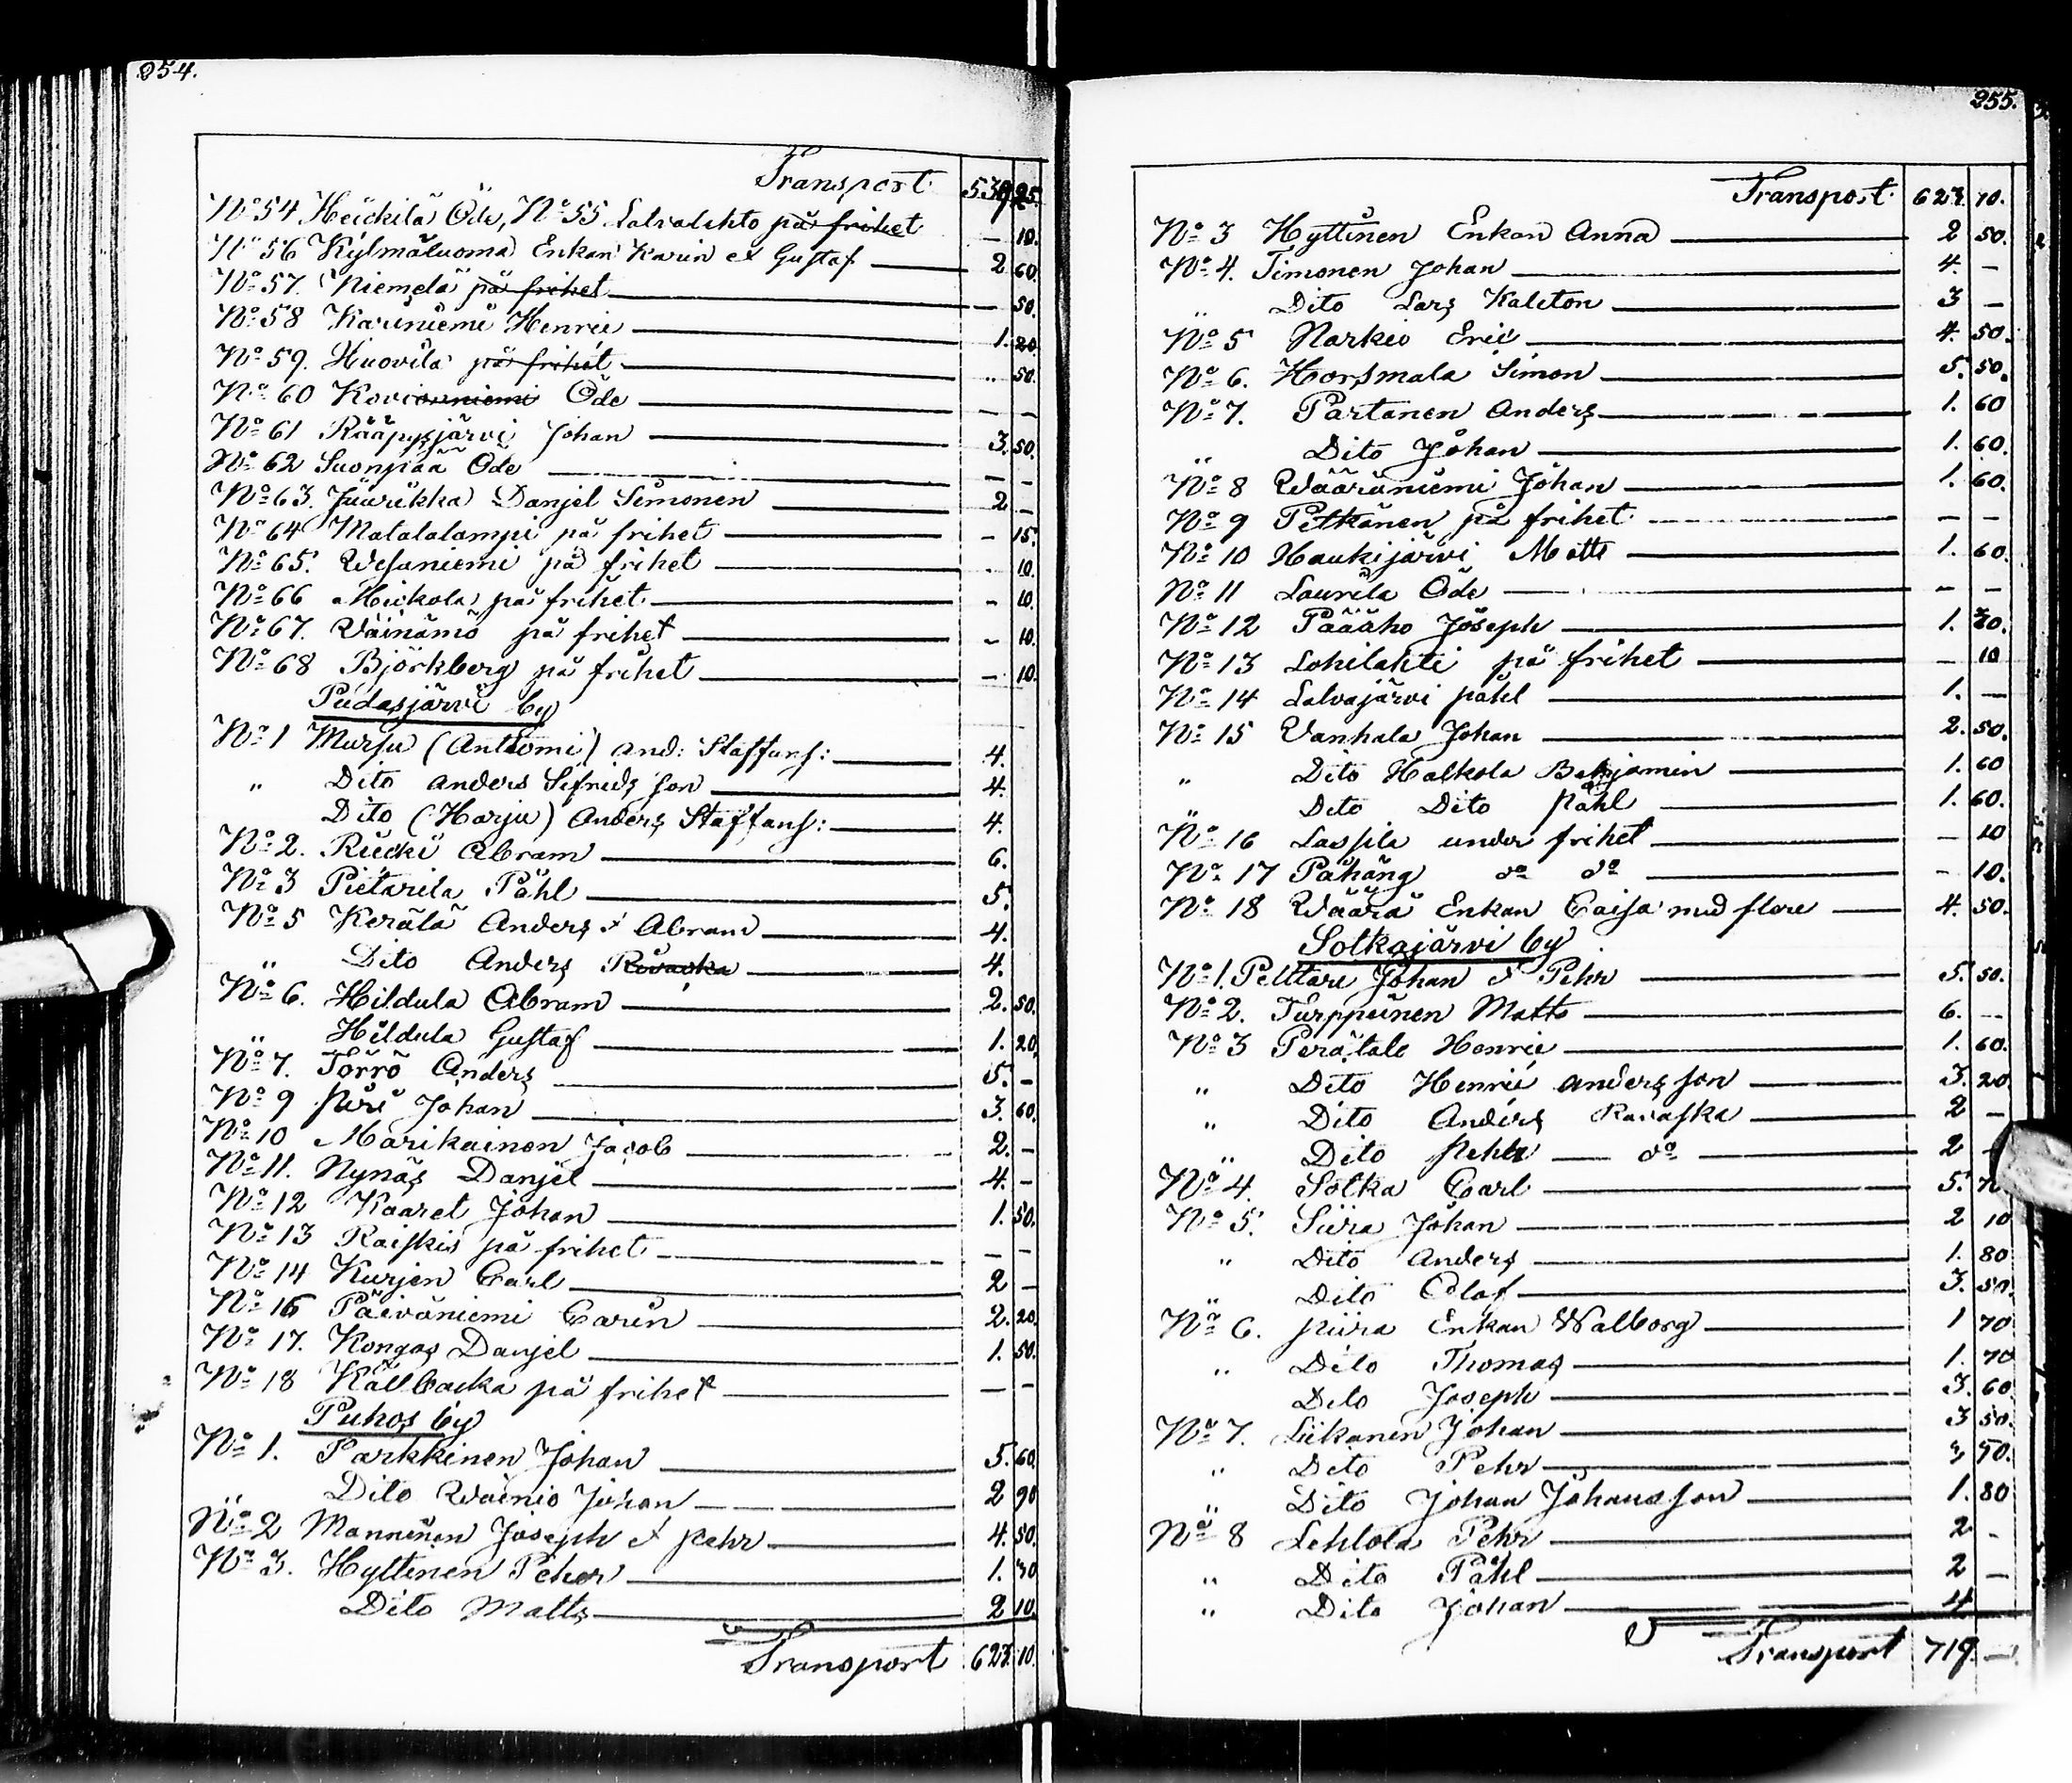 254.
Transport 539 25.
No 54 Heickilä Öde, No 55 Latvalehto på frihet — 10.
No 56 Kylmäluoma Enkan Karin et Gustaf 2 60.
No 57. Niemelä på frihet — 50.
No 58 Kariniemi Henric 1. 20
No 59. Huovila på frihet .. 50.
No 60 Kovioniemi Öde — —
No 61 Rääpysjärvi Johan 3. 50.
No 62 Suonpää Öde — —
No 63. Juurikka Danjel Simonen 2 —
No 64 Matalalampi på frihet — 15.
No 65. Wesaniemi på frihet - 10.
No 66 Mickola på frihet - 10.
No 67. Väinämö på frihet - 10.
No 68 Björkberg på frihet — 10.
Pudasjärvi by
No 1 Mursu (Anttomi) And: Staffans: 4.
" Dito Anders Sifreds Son 4.
Dito (Harju) Anders Staffans: 4.
No 2. Riecki Abram 6.
No 3 Pietarila Påhl 5.
No 5 Kerälä Anders & Abram 4.
" Dito Anders Råvaska 4.
No 6. Hildula Abram 2. 50.
" Hildula Gustaf 1. 20
No 7. Törrö Anders 5. -
No 9 Piri Johan 3. 60.
No 10 Marikainen Jacob 2. -
No 11. Nynäs Danjel 4. -
No 12 Kaaret Johan 1. 50.
No 13 Raiskio på frihet — -
No 14 Kurjen Carl 2 -
No 16 Päiväniemi Carin 2. 20
No 17. Kongas Danjel 1. 50.
No 18 Källbacka på frihet — -
Puhos by
No 1. Parkkinen Johan 5. 60.
Dito Wäinio Johan 2 90
No 2 Manninen Joseph & Pehr 4. 50
No 3. Hyttinen Pehr 1. 30
Dito Matts 2 10.
Transport 627. 10.
255.
Transport 627. 10.
No 3 Hyttinen Enkan Anna 2 50.
No 4. Timonen Johan 4. —
" Dito Lars Kaleton 3 —
No 5 Narkio Eric 4. 50.
No 6. Horsmala Simon 5. 50.
No 7. Partanen Anders 1. 60
" Dito Johan 1. 60.
No 8 Wääräniemi Johan 1. 60.
No 9 Petkänen på frihet — —
No 10 Haukijärvi Matts 1. 60.
No 11 Laurila Öde — —
No 12 Pääaho Joseph 1. 20.
No 13 Lohilahti på frihet — 10
No 14 Latvajärvi Påhl 1. —
No 15 Vanhala Johan 2. 50.
" Dito Halkola Benjamin 1. 60
" Dito Dito Påhl 1. 60.
No 16 Lassila under frihet — 10
No 17 Påhäng do do - 10.
No 18 Wäärä Enkan Caisa med flere 4. 50.
Sotkajärvi by
No 1. Pelttari Johan & Pehr 5. 50.
No 2. Turppeinen Matts 6. —
No 3 Perätalo Henric 1. 60.
" Dito Henric Anders son 3. 20
" Dito Anders Ravaska 2 —
" Dito Pehr — do 2
No 4. Sotka Carl 5.
No 5. Siira Johan 2 10
" Dito Anders 1. 80
" Dito Olof 3. 50.
No 6. Piira Enkan Walborg 1 70
" Dito Thomas 1. 70
Dito Joseph 3. 60
No 7. Liikanen Johan 3 50.
" Dito Pehr 3 50.
" Dito Johan Johansson 1. 80
No 8 Lehtola Pehr 2 -
" Dito Påhl 2 —
" Dito Johan 4
Transport 719. —